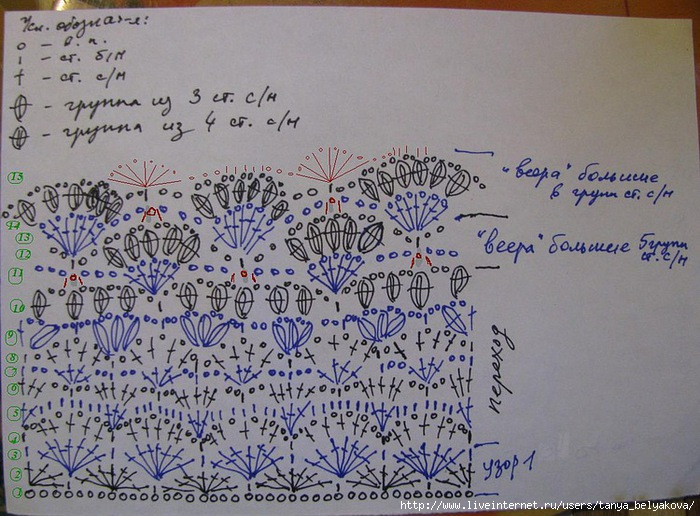 Усл. обознач-я:
o - в. п.
ı - ст. б/н
† - ст. с/н
- группа из 3 ст. с/н
- группа из 4 ст. с/н
"веера" большие
в групп ст. с/н
"веера" большие 5 групп
ст. с/н
переход
узор 1
15
14
13
12
11
10
9
8
7
6
5
4
3
2
1
http://www.liveinternet.ru/users/tanya_belyakova/